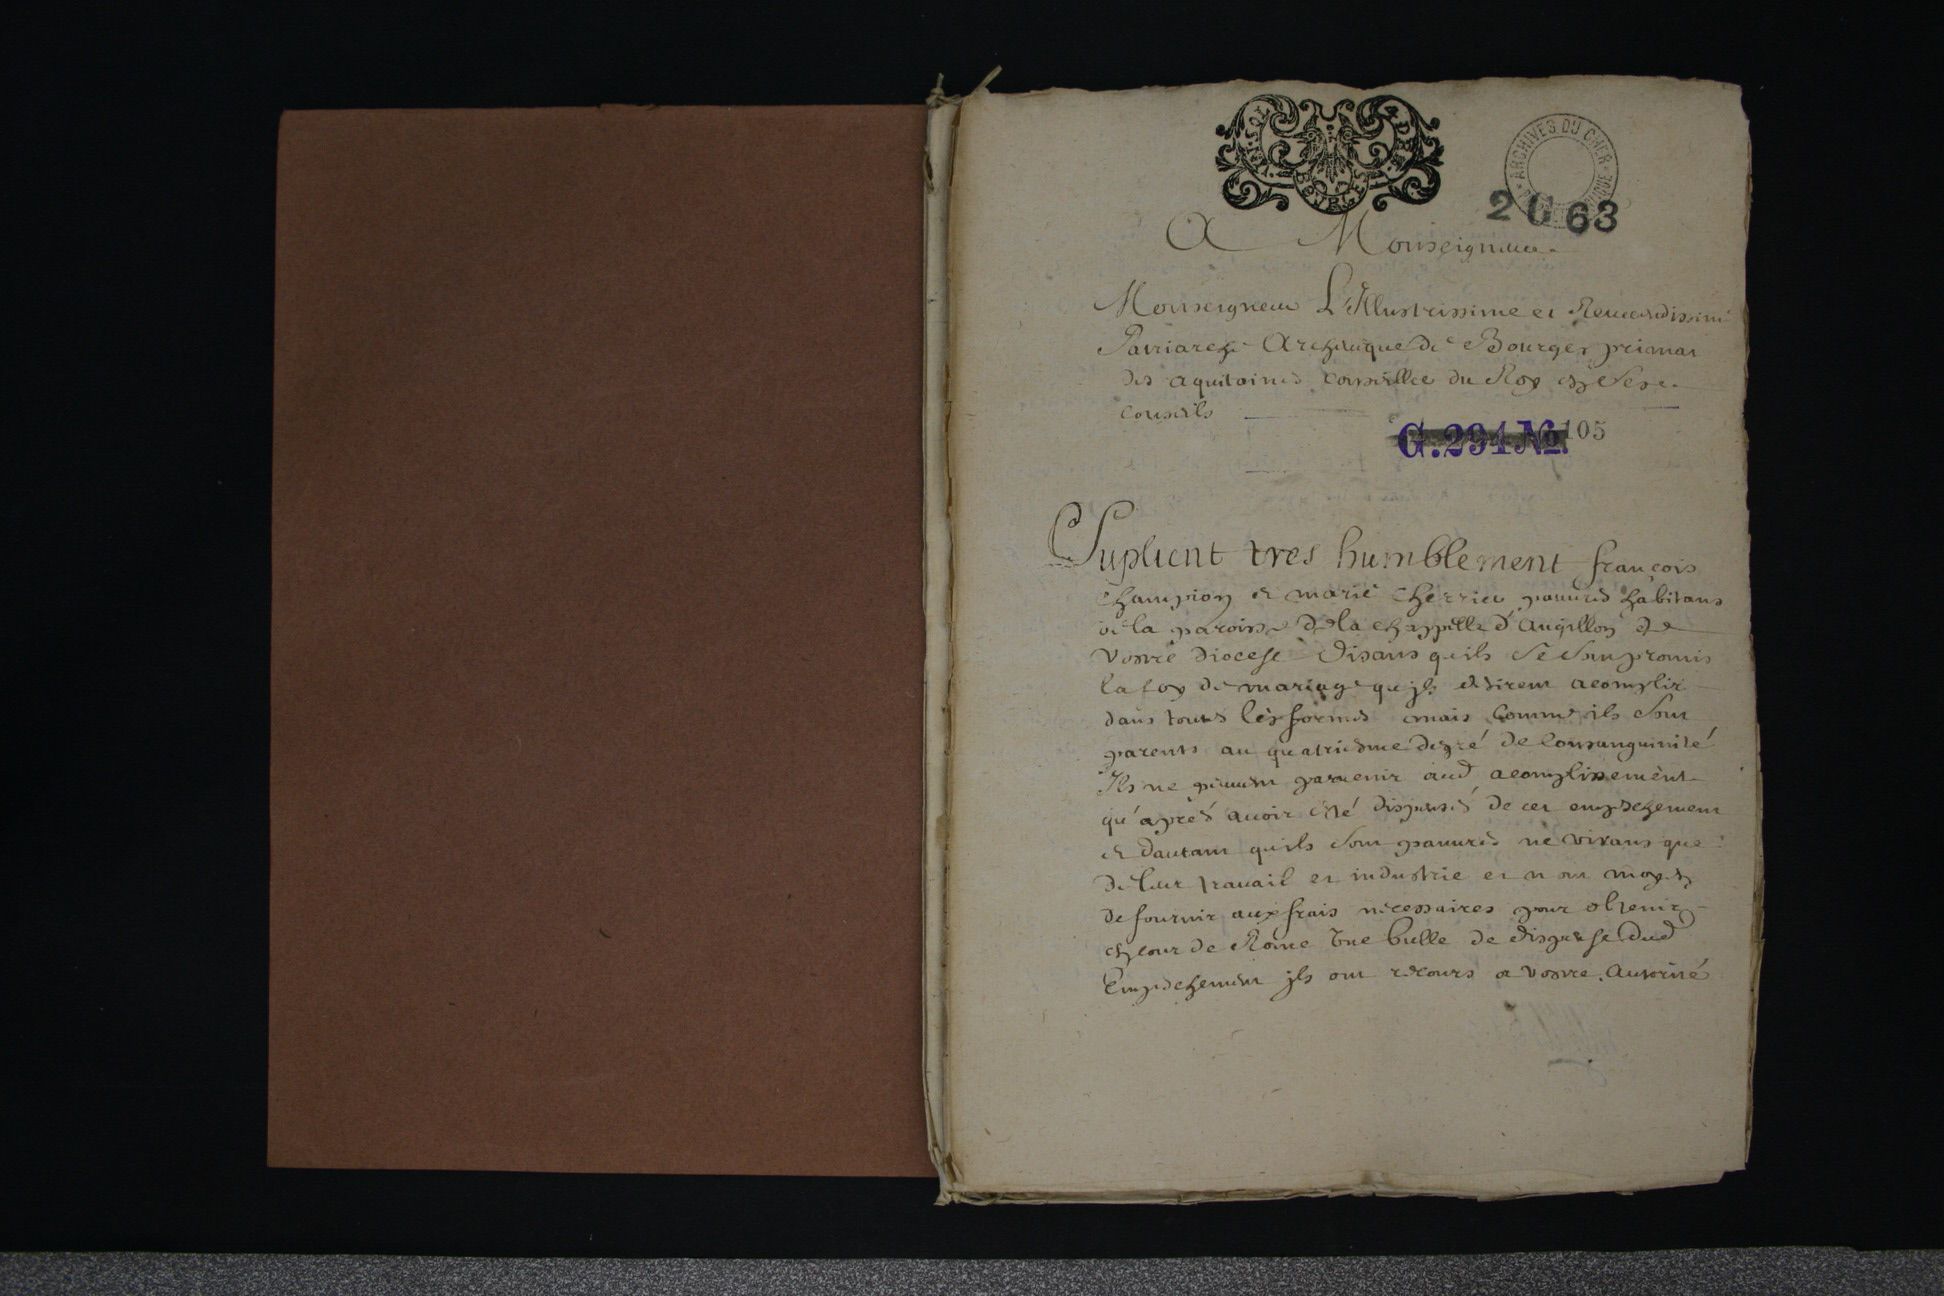 BOURGES
ARCHIVES DU CHER
2 G 63
A Monseigneur
Monseigneur L'Illustrissime et Reuerendissime
Patriarche Archeuesque de Bourges primat
des aquitaines conseiller du Roy en ses
conseils
G.291 No. 105
Suplient tres humblement françois
Champion et marie Cherrier pauures habitans
de la paroisse de la chappelle d'angillon de
vostre diocese disans quils se sont promis
la foy de mariage quils desirent acomplir
dans toutes les formes mais comme ils sont
parents au quatriesme degré de consanguinité
Ils ne peuuent paruenir aud acomplissement
qu'aprés auoir esté dispensés de cet empechement
et dautant quils sont pauures ne vivans que
de leur trauail et industrie et n'ont moyen
de fournir aux frais necessaires pour obtenir
en cour de Rome vne bulle de dispense dud
Empechement ils ont recours a vostre Autorité